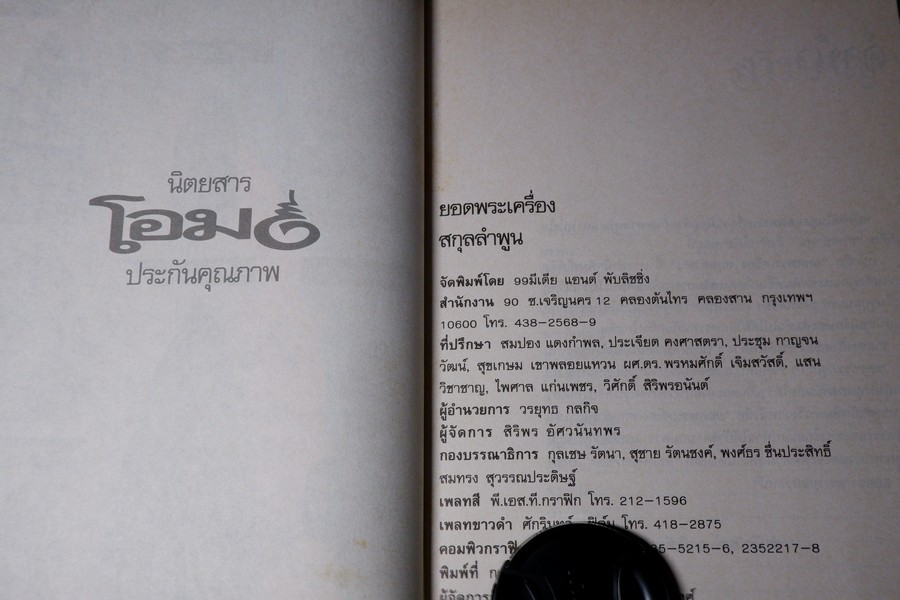 นิตยสาร
โอม
ประกันคุณภาพ
ยอดพระเครื่อง
สกุลลำพูน
จัดพิมพ์โดย 99มีเดีย แอนด์ พับลิชชิ่ง
สำนักงาน 90 ซ.เจริญนคร 12 คลองต้นไทร คลองสาน กรุงเทพฯ
10600 โทร. 438-2568-9
ที่ปรึกษา สมปอง แตงกำพล, ประเจียด คงศาสตรา, ประชุม กาญจน
วัฒน์, สุขเกษม เขาพลอยแหวน ผศ.ดร. พรหมศักดิ์ เจิมสวัสดิ์, แสน
วิชาชาญ, ไพศาล แก่นเพชร, วิศักดิ์ สิริพรอนันต์
ผู้อำนวยการ วรยุทธ กลกิจ
ผู้จัดการ สิริพร อัศวนันทพร
กองบรรณาธิการ กุลเชษ รัตนา, สุชาย รัตนชงค์, พงศ์ธร ชื่นประสิทธิ์
สมทรง สุวรรณประดิษฐ์
เพลทสี พี.เอส.ที.กราฟิก โทร. 212-1596
เพลทขาวดำ ฟิล์ม โทร. 418-2875
5215-6, 2352217-8
พิมพ์ที่